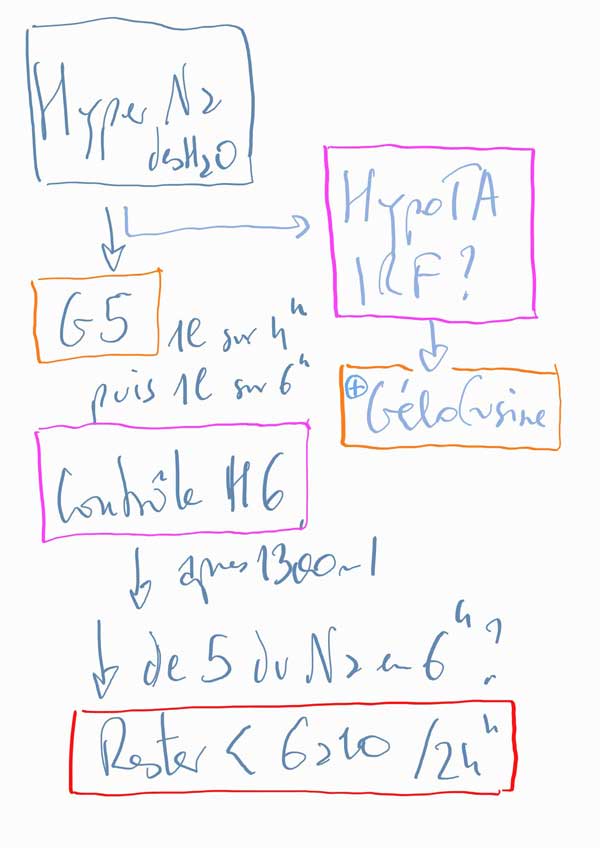 Hyper Na
desH2O
HypoTA
IRF ?
G5
1l sur 4h
puis 1l sur 6h
+ Gélofusine
Contrôle H6
↓ apres 1300ml
↓ de 5 du Na en 6h ?
Rester < 6 à 10 /24h